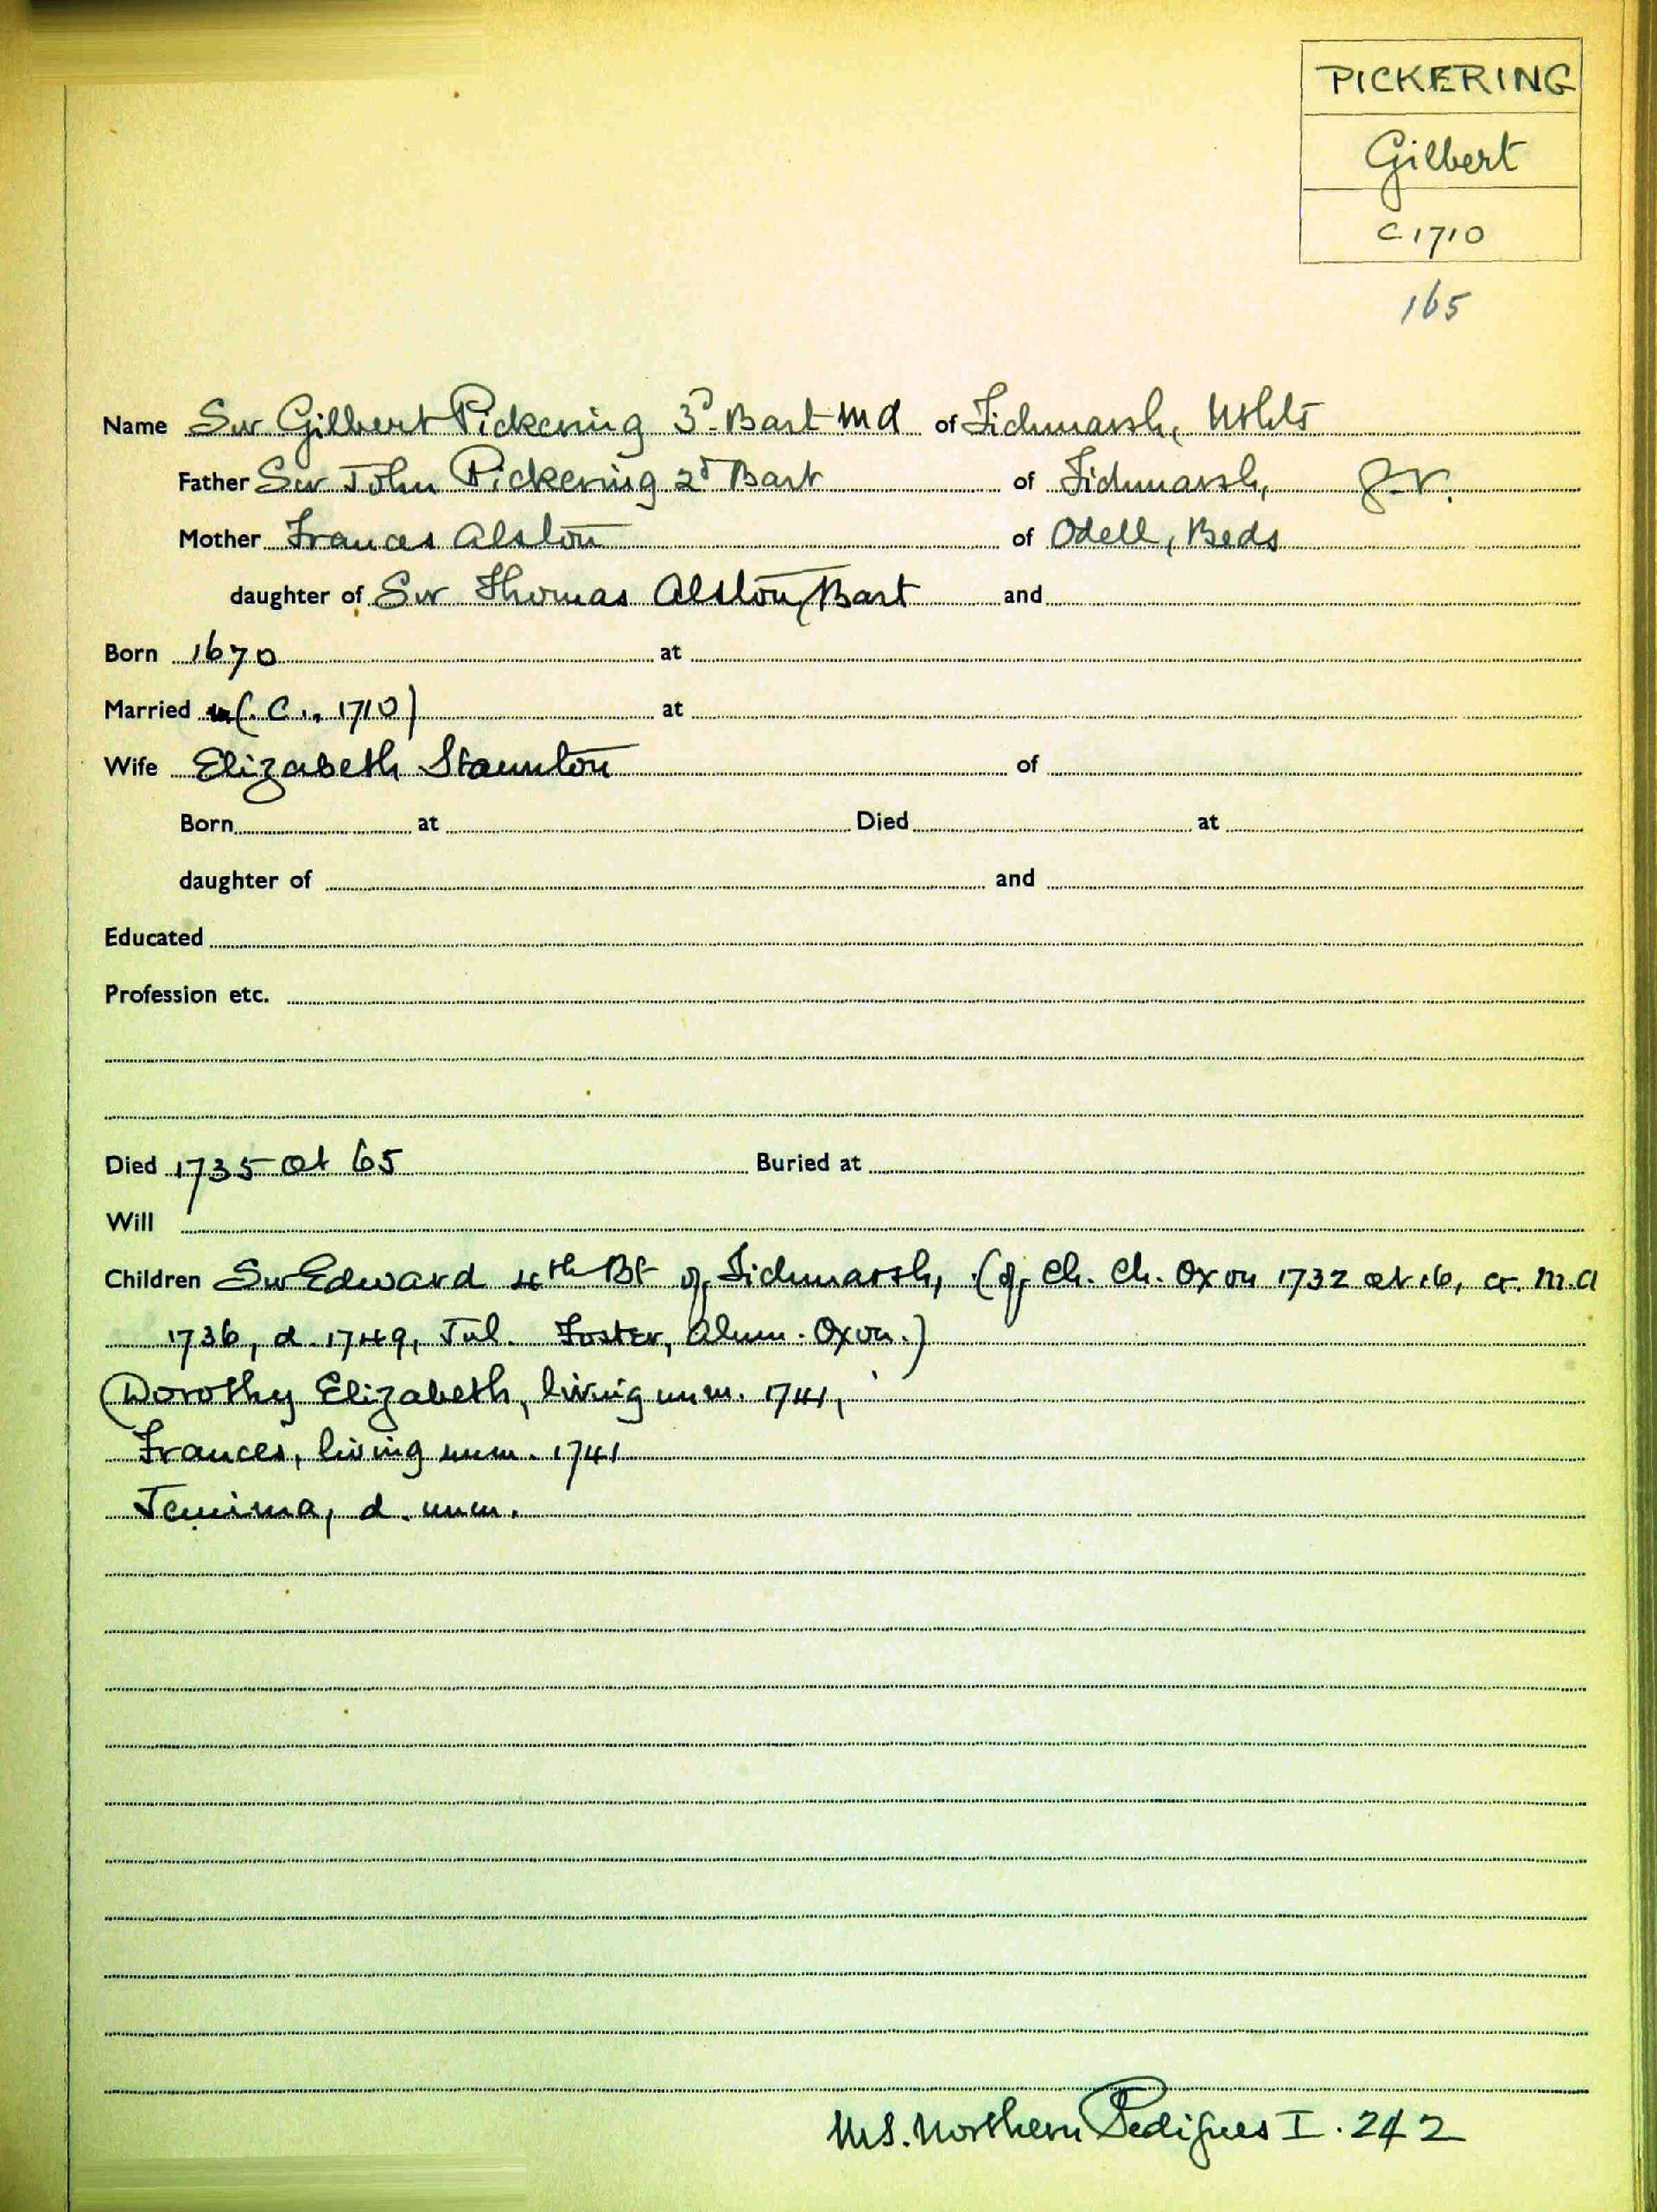 PICKERING
Gilbert
C 1710
165
Name Sir Gilbert Pickering 3d Bart of Tichmarsh, Nthts
Father Sir John Pickering 2d Bart of Tichmarsh,
Mother Frances Alston of Odell, Beds
daughter of Sir Thomas Alston, Bart and
Born 1670 at
Married (C.. 1710) at
Wife Elizabeth Staunton of
Born at Died at
daughter of and
Educated
Profession etc.
Died 1735 æt 65 Buried at
Will
Children Sir Edward 4th Bt of Tichmarsh, (of Ch. Ch. Oxon 1732 æt 16, cr. M.A
1736, d. 1749, Jul. Foster, Alum. Oxon.)
Dorothy Elizabeth, living unm. 1741,
Frances, living unm. 1741
Jemima, d. unm.
MS. Northern Pedigrees I. 242